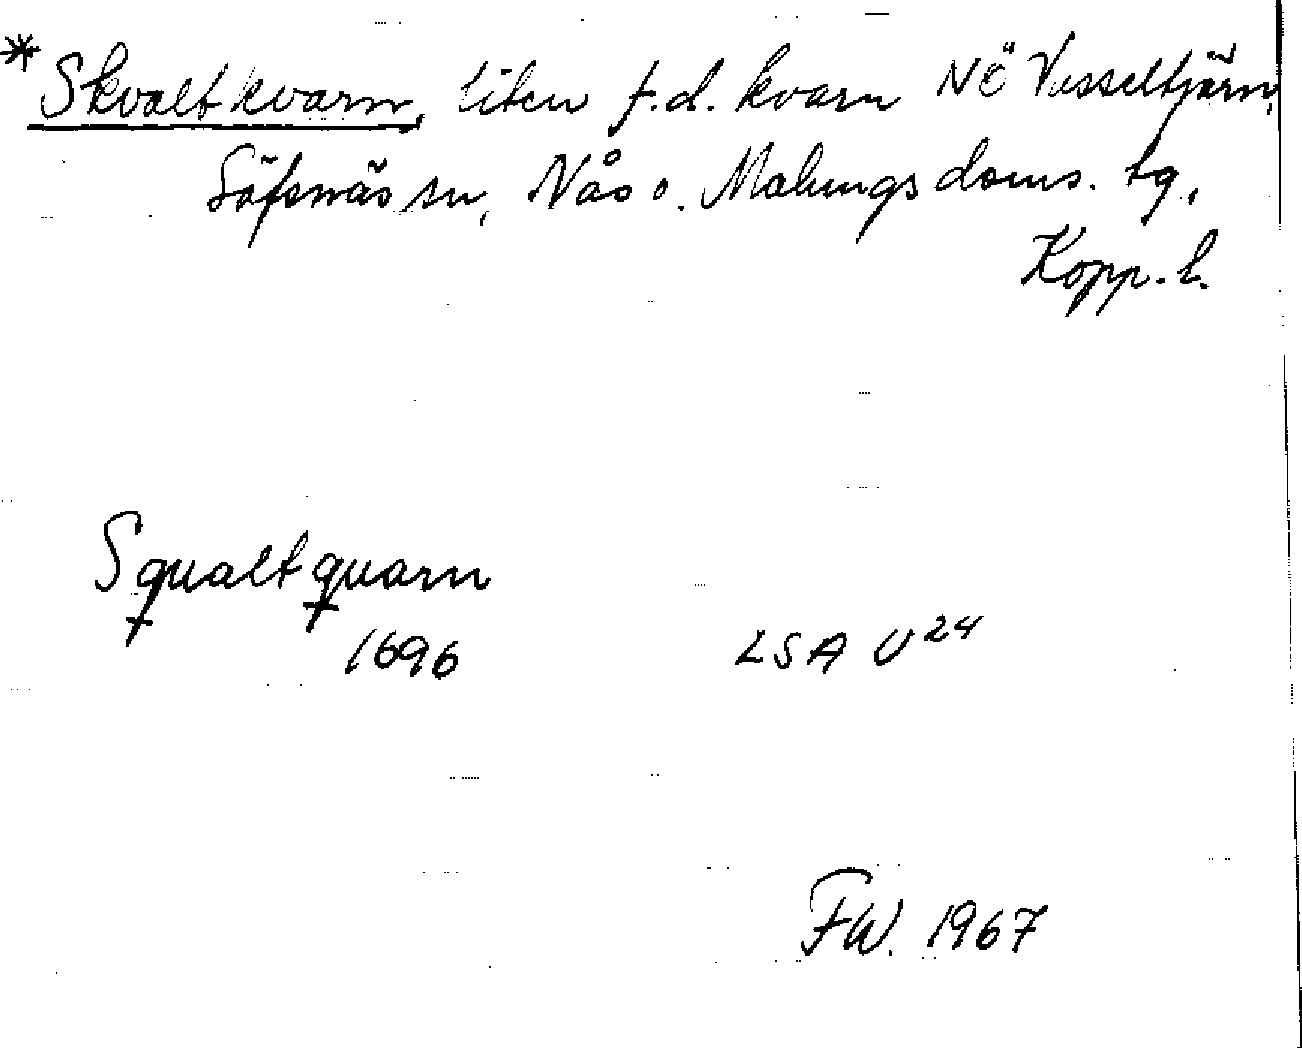 * Skvaltkvarn, liten f.d. kvarn NÖ Vusseltjärn,
Säfsnäs sn, Nås o. Malungs doms. tg,
Kopp. l.
Squaltquarn
1696 LSA U24
FW. 1967